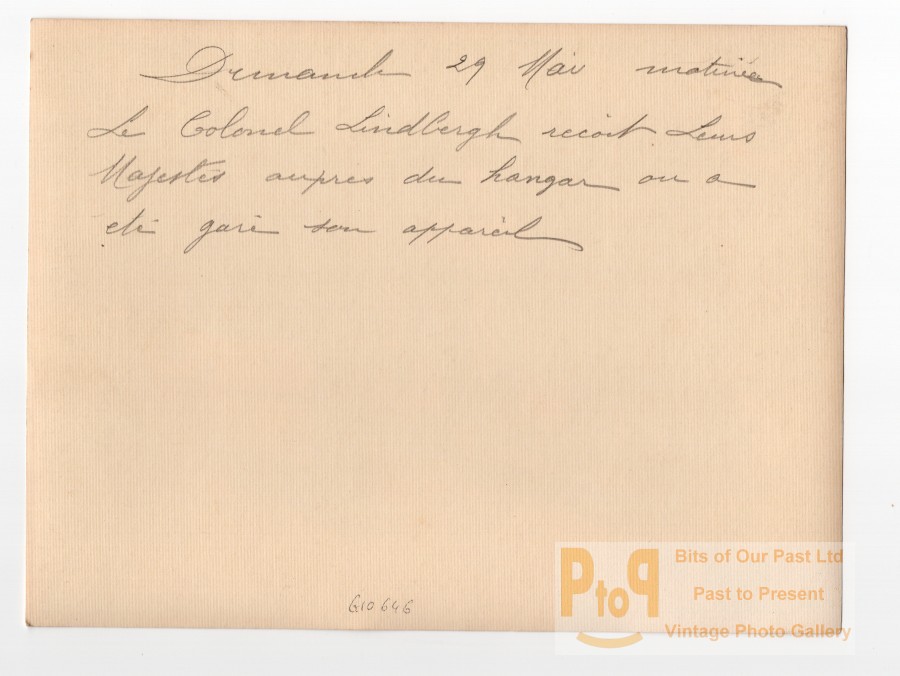 Dimanche 29 Mai matinée
Le Colonel Lindbergh recoit Leurs
Majestés aupres du hangar ou a
eté garé son appareil
G10646
PtoP
Bits of Our Past Ltd
Past to Present
Vintage Photo Gallery